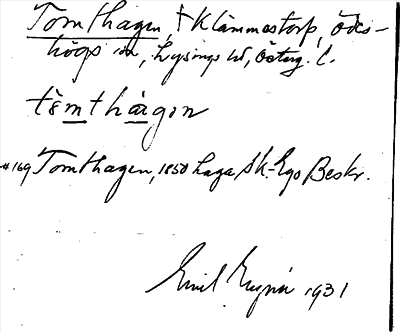 Tomthagen, † Klämmestorp, Ödes-
högs sn, Lysings hd, Österg. l.
tömthàgen
169 Tomthagen, 1850 Laga Sk.-Ego Beskr.
Emil 1931